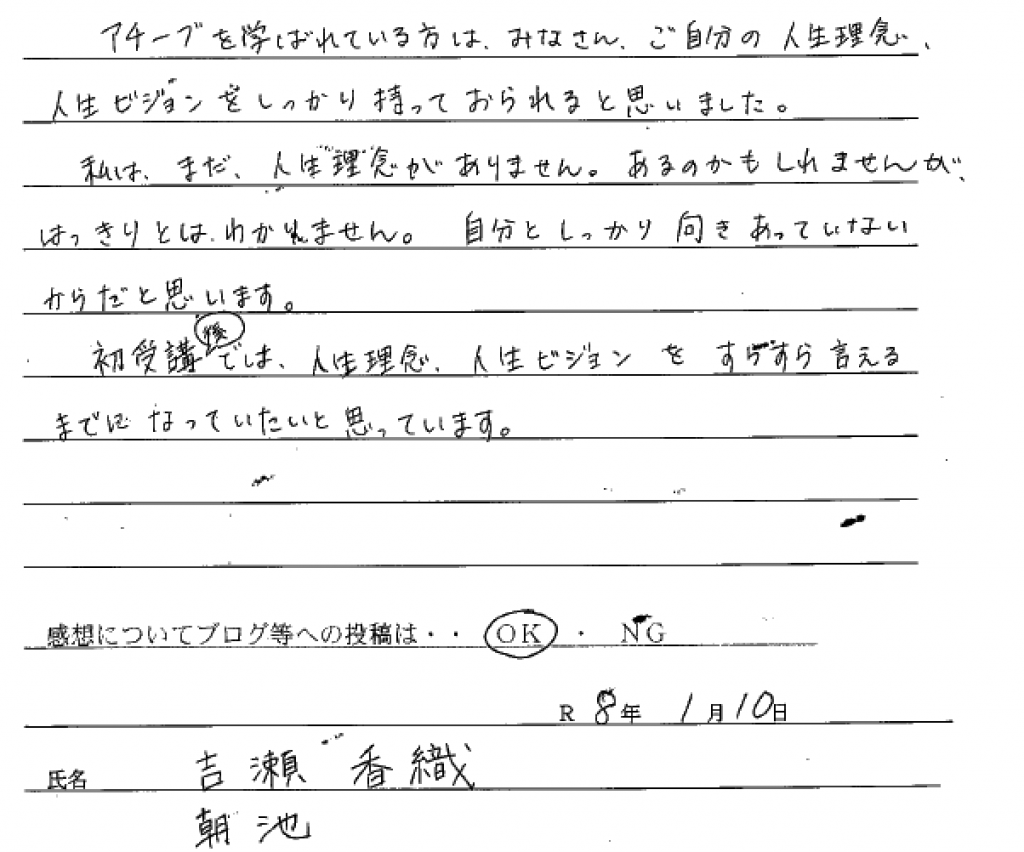 アチーブを学ばれている方は、みなさん、ご自分の人生理念、
人生ビジョンをしっかり持っておられると思いました。
私は、まだ、人生理念がありません。あるのかもしれませんが、
はっきりとは、わかれません。 自分としっかり向きあっていない
からだと思います。
初受講後では、人生理念、人生ビジョンをすらすら言える
までになっていたいと思っています。
感想についてブログ等への投稿は・・ OK ・ NG
R 8年 1月10日
氏名 吉瀬 香織
朝池